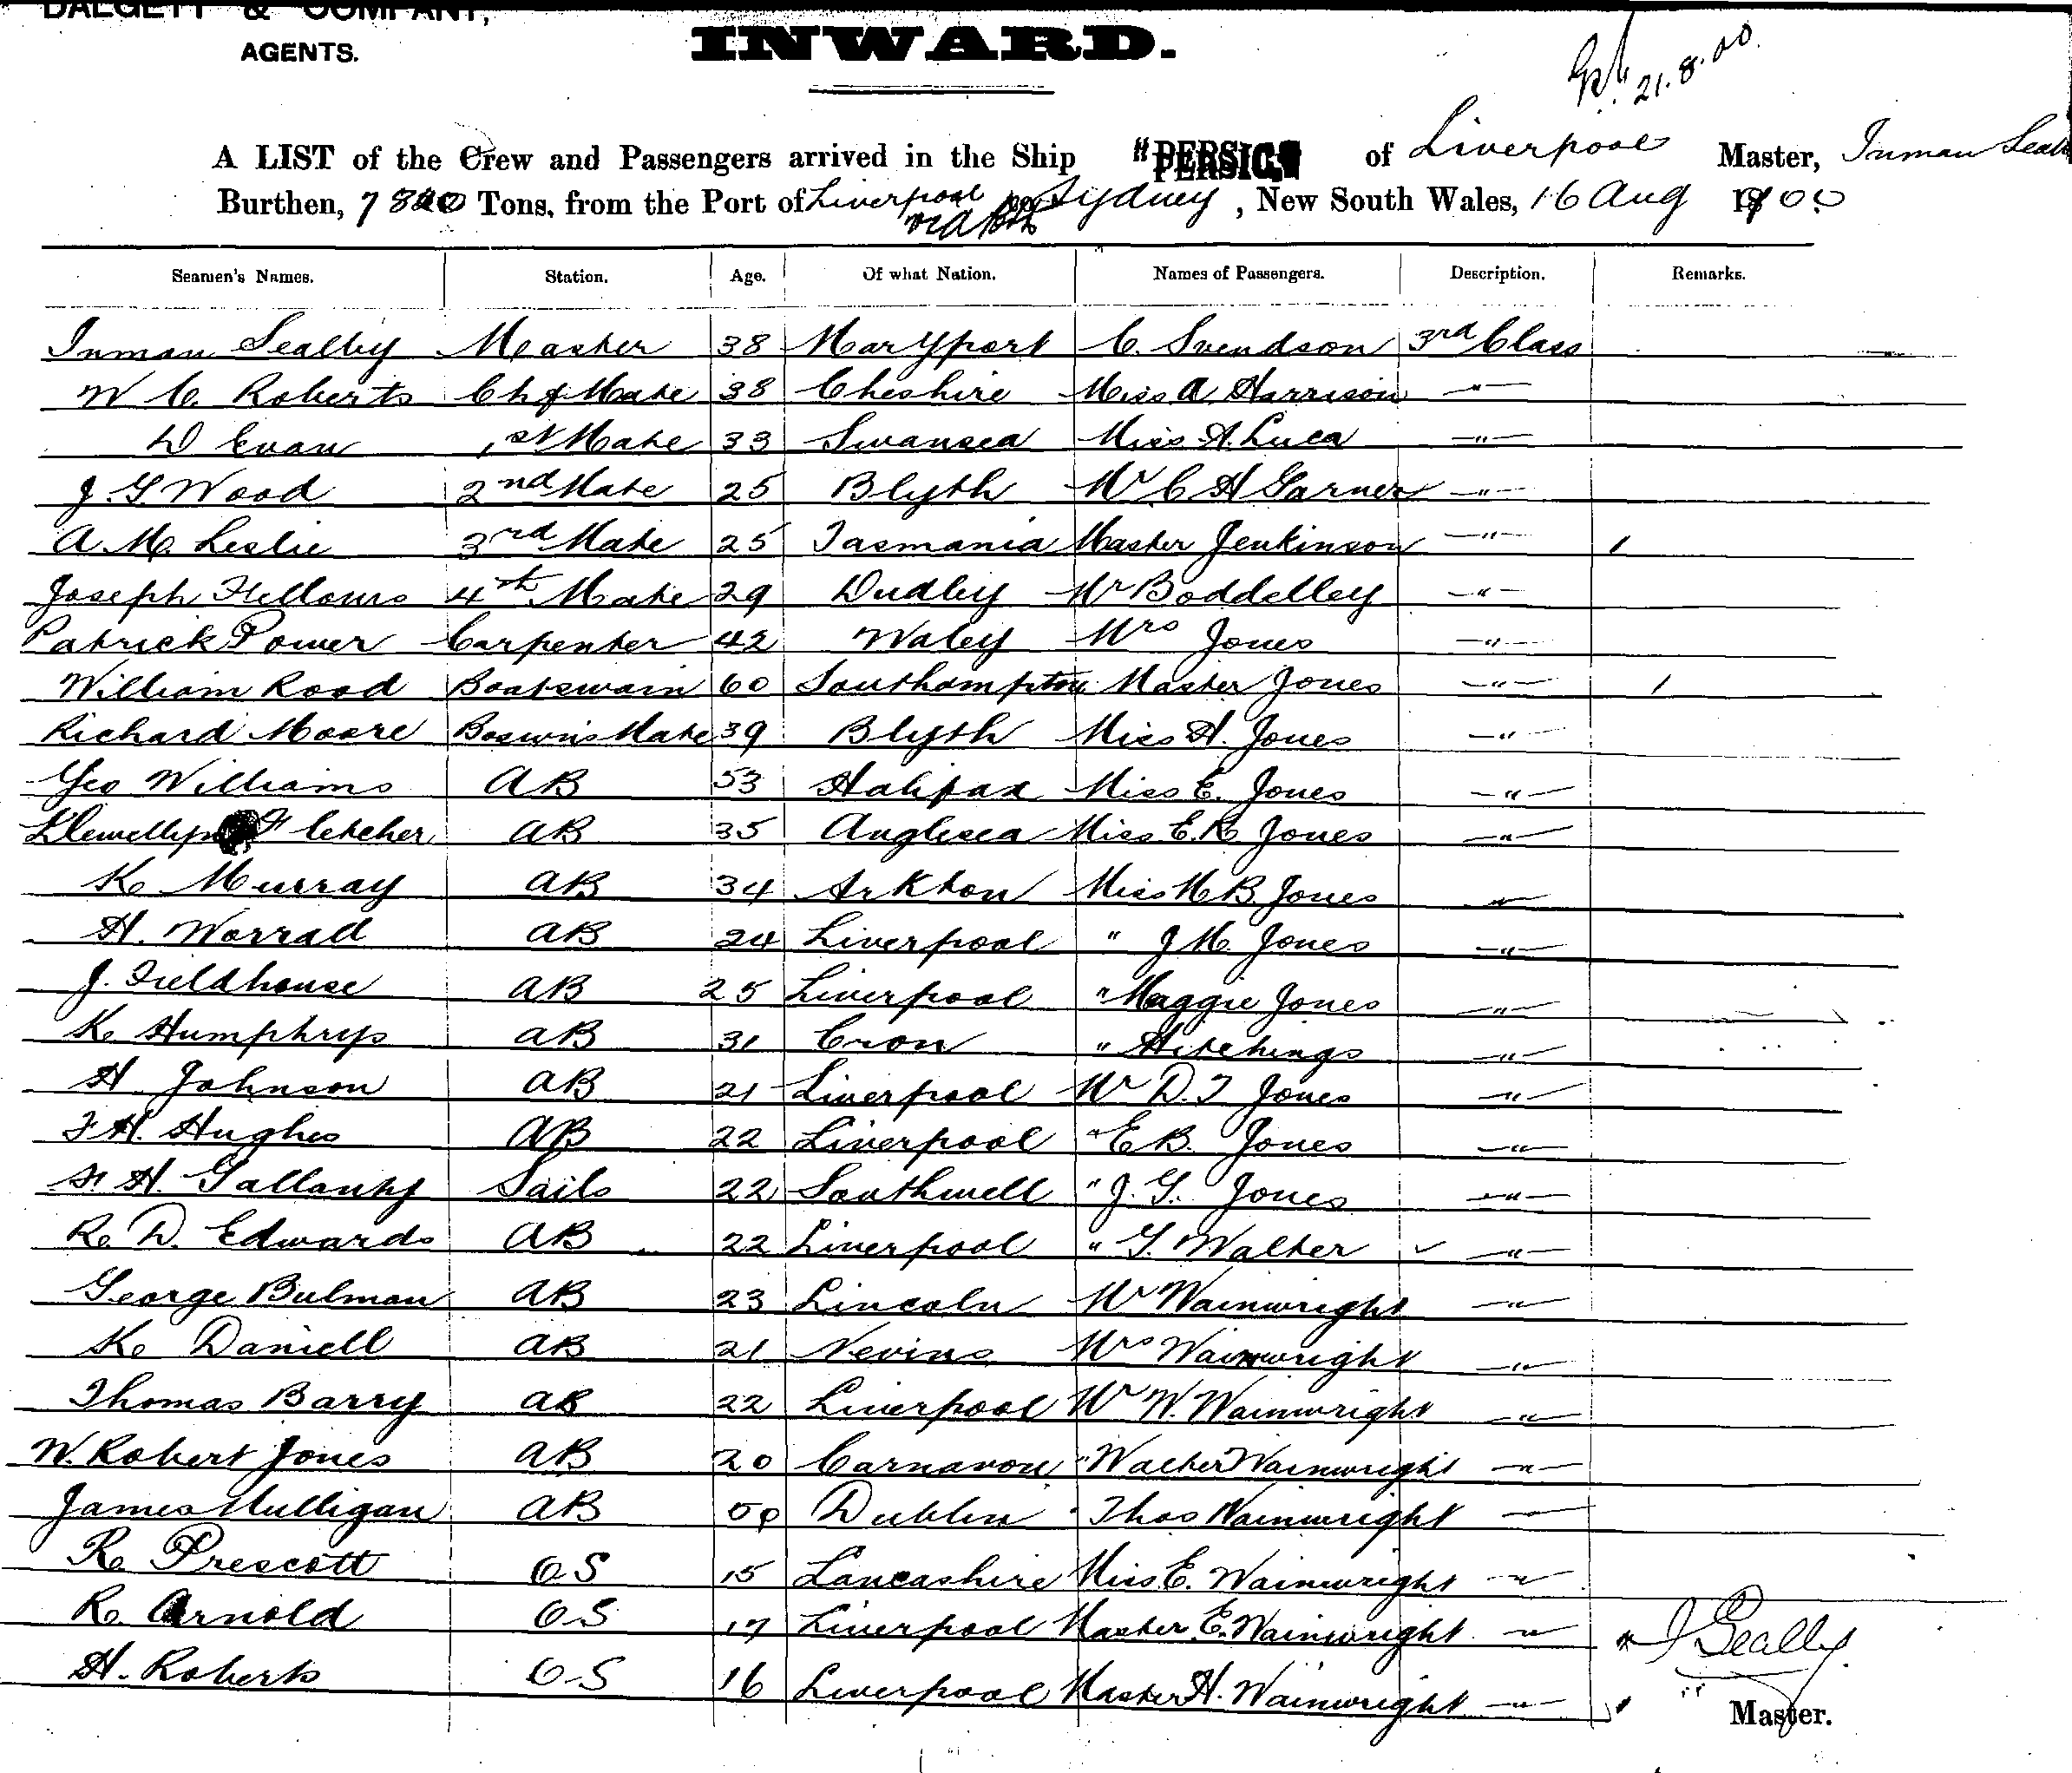 DALGETY & COMPANY,
AGENTS.
INWARD.
21.8.00.
A LIST of the Crew and Passengers arrived in the Ship "PERSIC" of Liverpool Master, Inman Sealby
Burthen, 78 Tons, from the Port of Liverpool to Sydney, New South Wales, 16 Aug 1900
via
Seamen's Names. Station. Age. Of what Nation. Names of Passengers. Description. Remarks.
Inman Sealby Master 38 Maryport C. Svendson 3rd Class
W C. Roberts Chf Mate 38 Cheshire Miss A Harrison "
D Evan 1st Mate 33 Swansea Miss A. Luca "
J. G Wood 2nd Mate 25 Blyth Mr C H Garner "
A. M. Leslie 3rd Mate 25 Tasmania Master Jenkinson "
Joseph Fellows 4th Mate 29 Dudley Mr Boddelley "
Patrick Power Carpenter 42 Mrs Jones "
William Rood Boatswain 60 Southampton Master Jones "
Richard Moore Boswn's Mate 39 Blyth Miss H. Jones "
Geo Williams AB 53 Halifax Miss E. Jones "
Llewellyn Fletcher AB 35 Anglesea Miss E. R. Jones "
R. Murray AB 34 Arkton Miss M B Jones "
H. Worrad AB 24 Liverpool " J M. Jones "
J. Fieldhouse AB 25 Liverpool " Maggie Jones "
R. Humphrys AB 31 " Hitchings "
H. Johnson AB 21 Liverpool Mr D. T Jones "
F H. Hughes AB 22 Liverpool " E B. Jones "
H. Gallanty Sails 22 Southwell " J. G. Jones "
R. D. Edwards AB 22 Liverpool " G. Walker "
George Bulman AB 23 Lincoln Mr Wainwright "
R. Daniell AB 21 Nevins Mrs Wainwright "
Thomas Barry AB 22 Liverpool Mr W. Wainwright "
W. Robert Jones AB 20 Carnavon " Walter Wainwright "
James Mulligan AB 50 Dublin " Thos Wainwright "
R. Prescott OS 15 Lancashire Miss E. Wainwright "
R. Arnold OS 17 Liverpool Master E. Wainwright "
H. Roberts OS 16 Liverpool Master H. Wainwright "
I Sealby
Master.